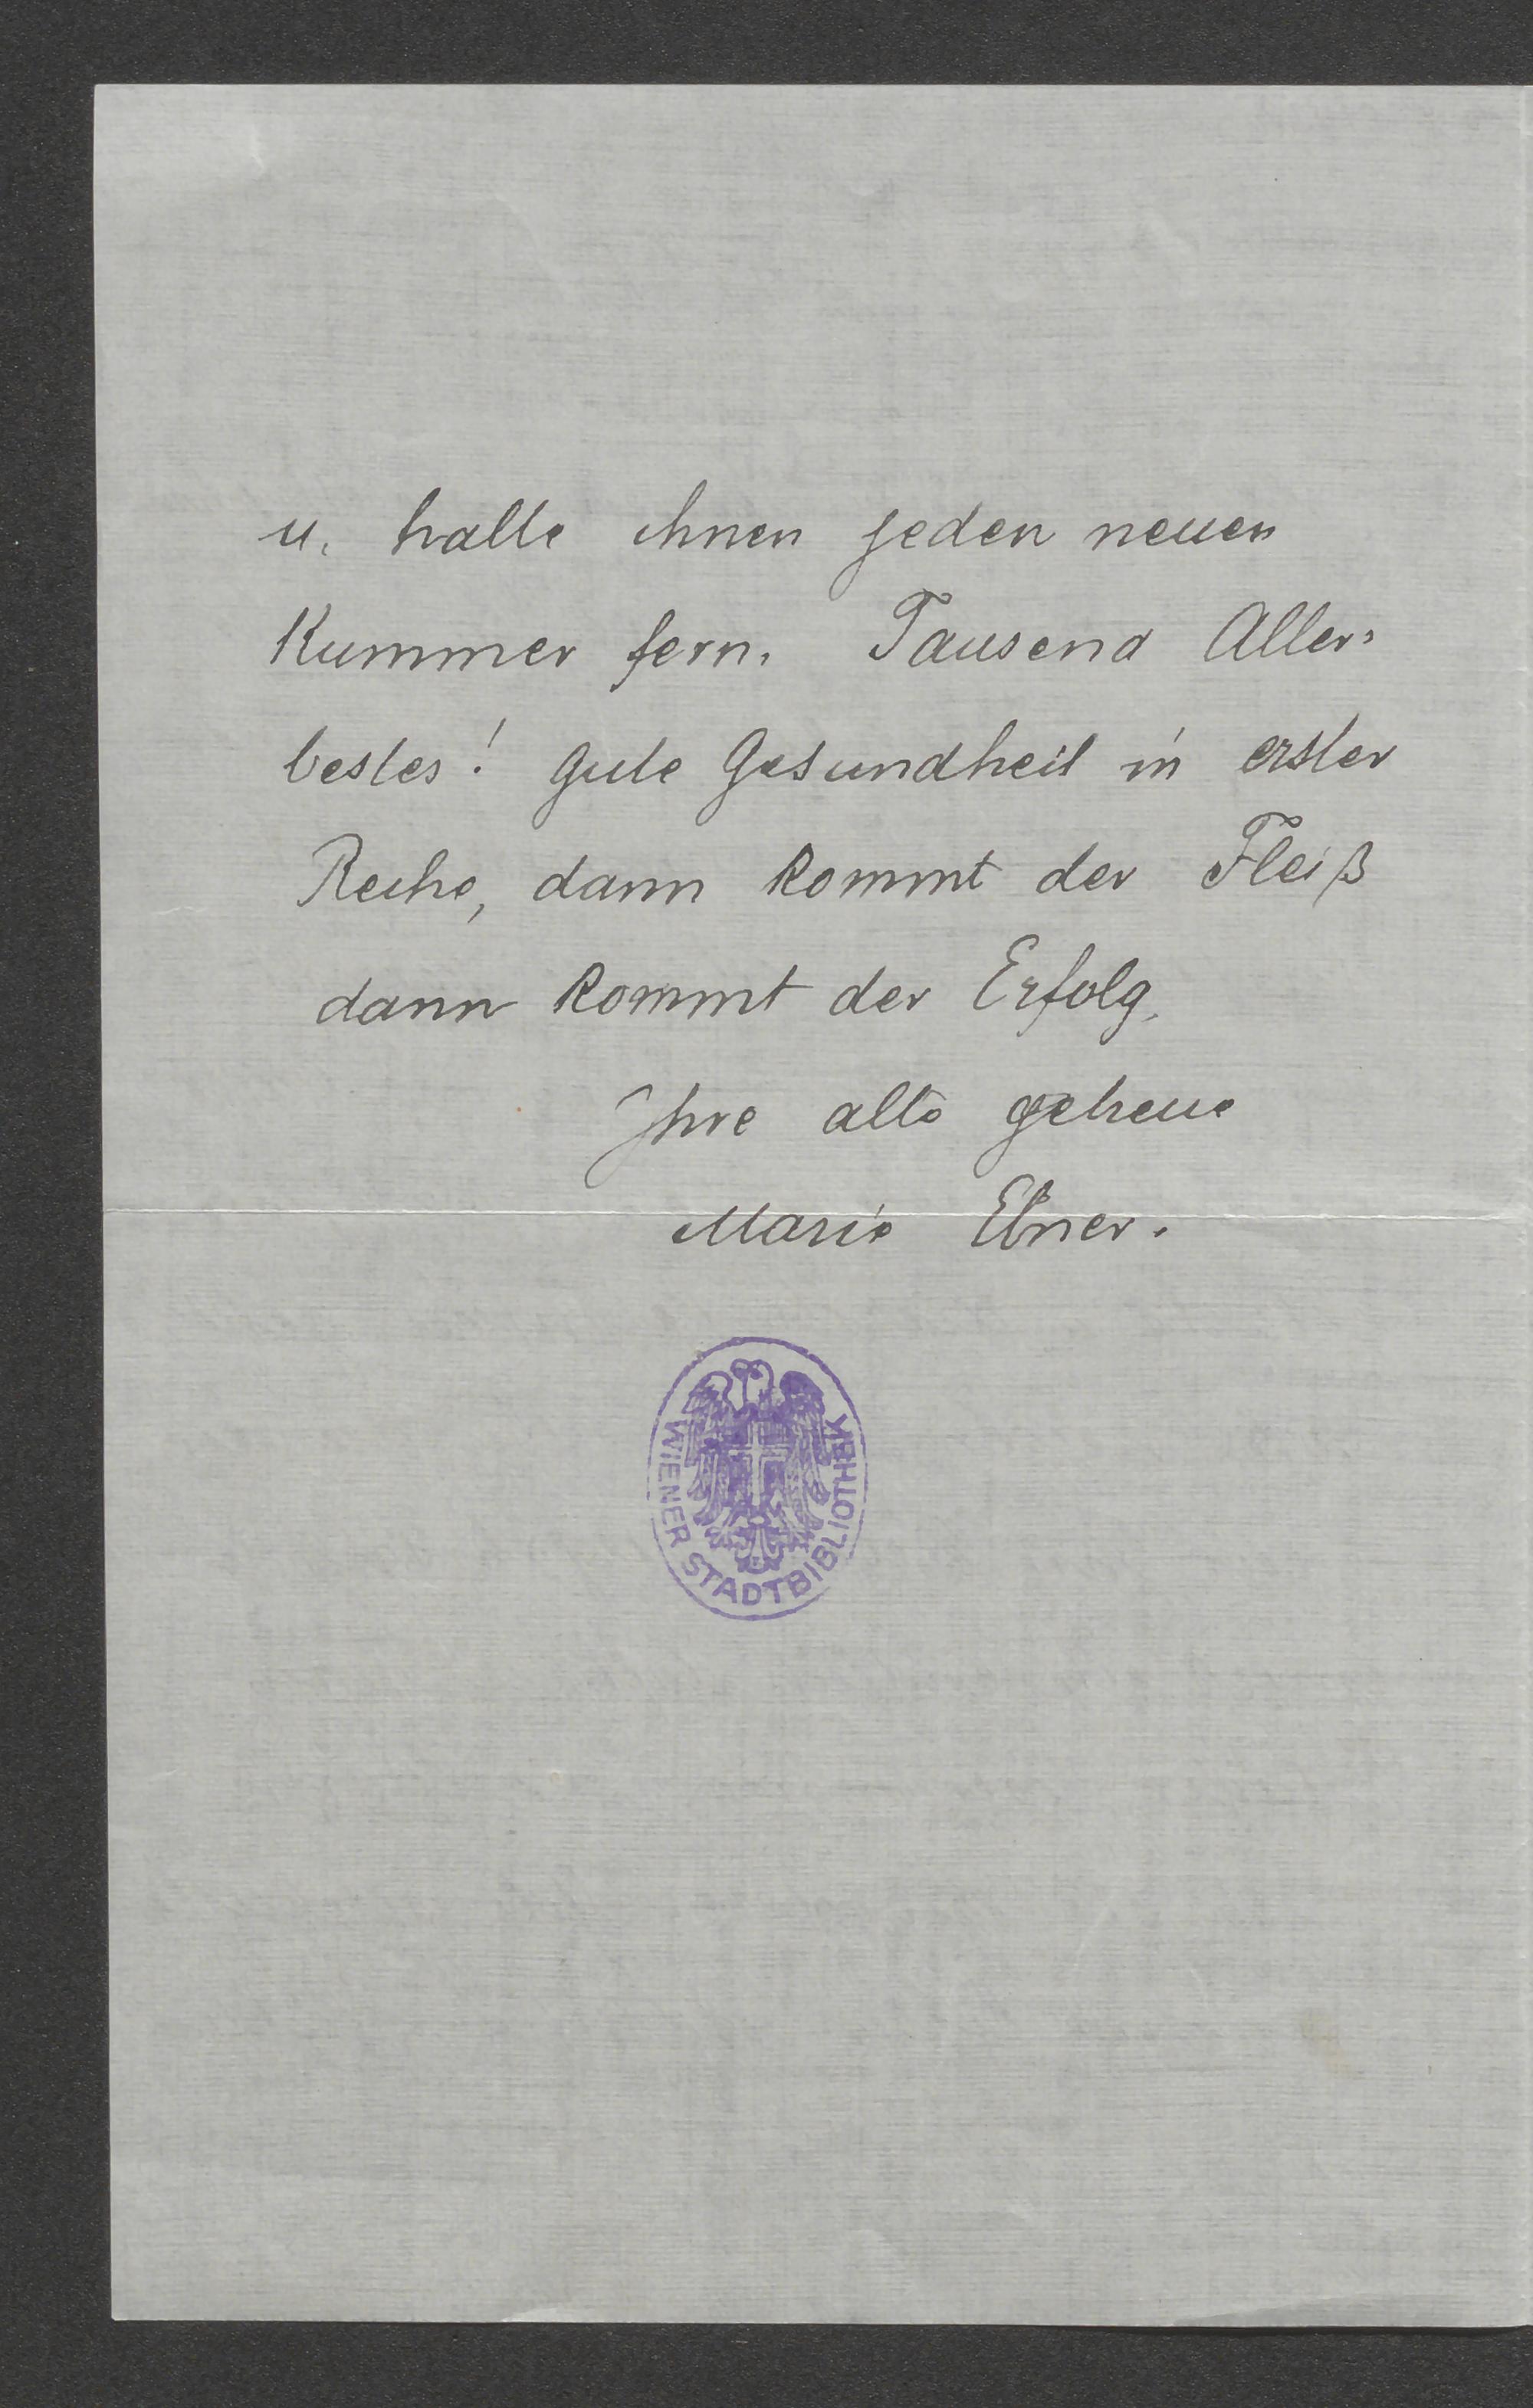 u. halte ihnen jeden neuen
Kummer fern. Tausend Aller-
bestes! Gute Gesundheit in erster
Reihe, dann kommt der Fleiß
dann kommt der Erfolg.
Ihre alte getreue
Marie Ebner.
WIENER STADTBIBLIOTHEK